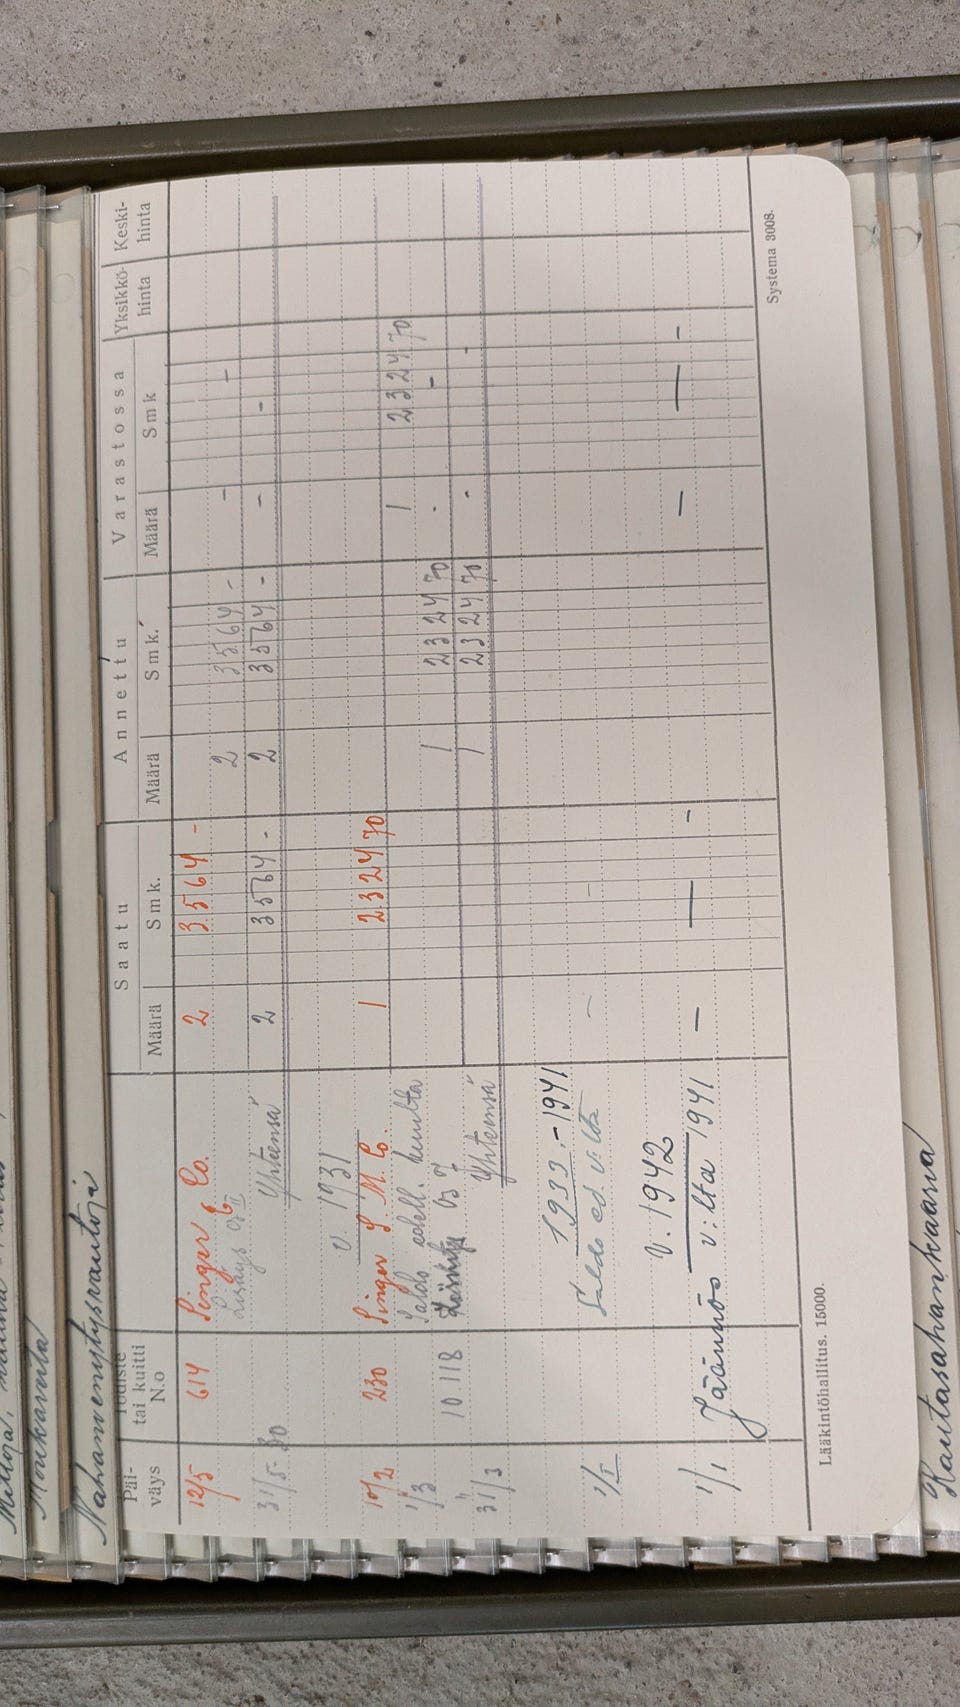 Monkanuita
Nahanvenytysrautoja
Päi- väys
Todiste tai kuitti N:o
Saatu
Annettu
Varastossa
Yksikkö- hinta
Keski- hinta
Määrä Smk. Määrä Smk. Määrä Smk
12/5 614 Singer & Co. 2 3564 -
Lisäys 2 3564 - - -
31/5-30 Yhteensä 2 3564 - 2 3564 - - -
v. 1931
10/2 230 Singer S. M. Co. 1 2324 70
1/3 Saldo edell. kuulta 1 2324 70
10118 1 2324 70 - -
31/3 Yhteensä 1 2324 70 - -
1933-1941
1/I Saldo ed. v:lta - -
V. 1942
1/1 Jäännös v:lta 1941 — — - — — -
Lääkintöhallitus. 15000.
Systema 3008.
Rautasahankaaria